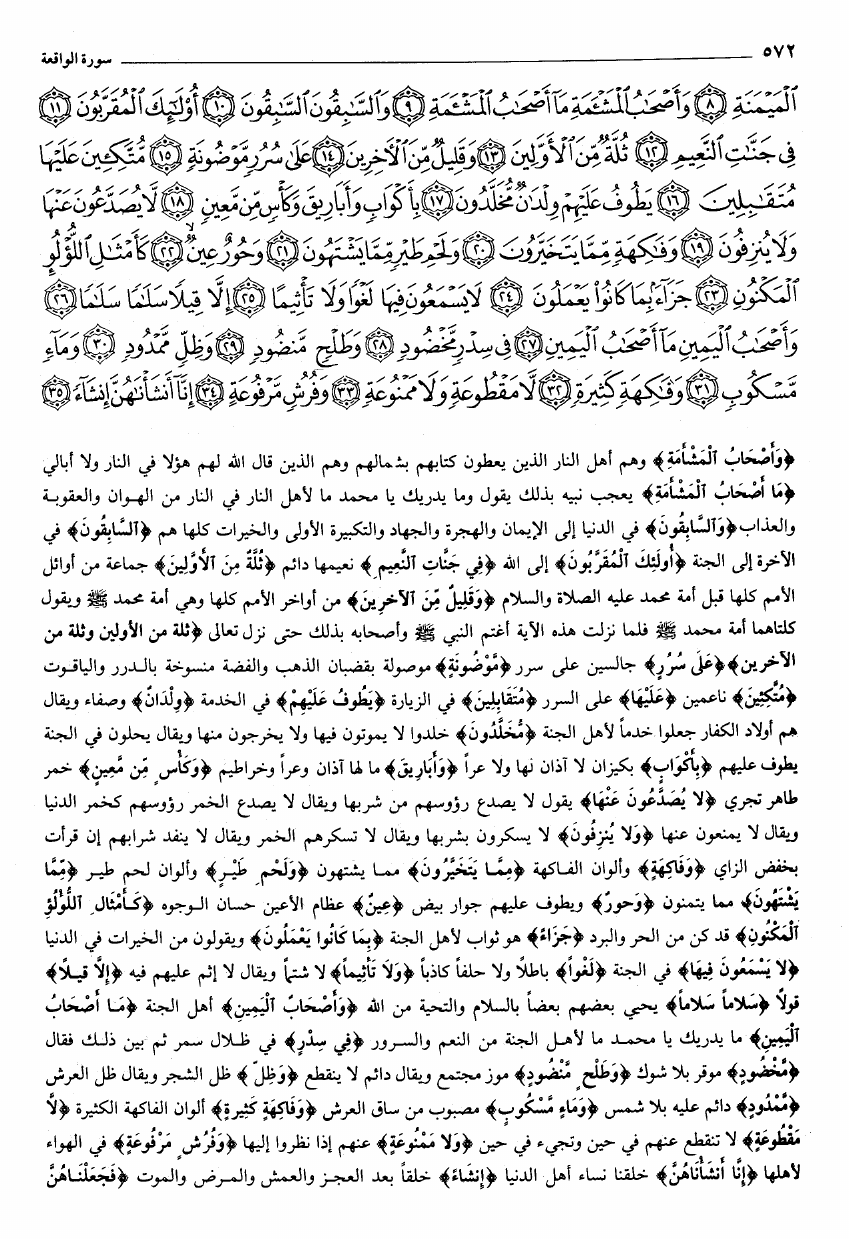 ٥٧٢ سورة الواقعة
ٱلْمَيْمَنَةِ ﴿٨﴾ وَأَصْحَٰبُ ٱلْمَشْـَٔمَةِ مَآ أَصْحَٰبُ ٱلْمَشْـَٔمَةِ ﴿٩﴾ وَٱلسَّٰبِقُونَ ٱلسَّٰبِقُونَ ﴿١٠﴾ أُو۟لَٰٓئِكَ ٱلْمُقَرَّبُونَ ﴿١١﴾
فِى جَنَّٰتِ ٱلنَّعِيمِ ﴿١٢﴾ ثُلَّةٌ مِّنَ ٱلْأَوَّلِينَ ﴿١٣﴾ وَقَلِيلٌ مِّنَ ٱلْءَاخِرِينَ ﴿١٤﴾ عَلَىٰ سُرُرٍ مَّوْضُونَةٍ ﴿١٥﴾ مُّتَّكِـِٔينَ عَلَيْهَا
مُتَقَٰبِلِينَ ﴿١٦﴾ يَطُوفُ عَلَيْهِمْ وِلْدَٰنٌ مُّخَلَّدُونَ ﴿١٧﴾ بِأَكْوَابٍ وَأَبَارِيقَ وَكَأْسٍ مِّن مَّعِينٍ ﴿١٨﴾ لَّا يُصَدَّعُونَ عَنْهَا
وَلَا يُنزِفُونَ ﴿١٩﴾ وَفَٰكِهَةٍ مِّمَّا يَتَخَيَّرُونَ ﴿٢٠﴾ وَلَحْمِ طَيْرٍ مِّمَّا يَشْتَهُونَ ﴿٢١﴾ وَحُورٌ عِينٌ ﴿٢٢﴾ كَأَمْثَٰلِ ٱللُّؤْلُوِٕ
ٱلْمَكْنُونِ ﴿٢٣﴾ جَزَآءًۢ بِمَا كَانُوا۟ يَعْمَلُونَ ﴿٢٤﴾ لَا يَسْمَعُونَ فِيهَا لَغْوًا وَلَا تَأْثِيمًا ﴿٢٥﴾ إِلَّا قِيلًا سَلَٰمًا سَلَٰمًا ﴿٢٦﴾
وَأَصْحَٰبُ ٱلْيَمِينِ مَآ أَصْحَٰبُ ٱلْيَمِينِ ﴿٢٧﴾ فِى سِدْرٍ مَّخْضُودٍ ﴿٢٨﴾ وَطَلْحٍ مَّنضُودٍ ﴿٢٩﴾ وَظِلٍّ مَّمْدُودٍ ﴿٣٠﴾ وَمَآءٍ
مَّسْكُوبٍ ﴿٣١﴾ وَفَٰكِهَةٍ كَثِيرَةٍ ﴿٣٢﴾ لَّا مَقْطُوعَةٍ وَلَا مَمْنُوعَةٍ ﴿٣٣﴾ وَفُرُشٍ مَّرْفُوعَةٍ ﴿٣٤﴾ إِنَّآ أَنشَأْنَٰهُنَّ إِنشَآءً ﴿٣٥﴾
﴿وَأَصْحَابُ ٱلْمَشْأَمَةِ﴾ وهم أهل النار الذين يعطون كتابهم بشمالهم وهم الذين قال الله لهم هؤلا في النار ولا أبالي
﴿مَا أَصْحَابُ ٱلْمَشْأَمَةِ﴾ يعجب نبيه بذلك يقول وما يدريك يا محمد ما لأهل النار في النار من الهوان والعقوبة
والعذاب ﴿وَٱلسَّابِقُونَ﴾ في الدنيا إلى الإيمان والهجرة والجهاد والتكبيرة الأولى والخيرات كلها هم ﴿ٱلسَّابِقُونَ﴾ في
الآخرة إلى الجنة ﴿أُولَئِكَ ٱلْمُقَرَّبُونَ﴾ إلى الله ﴿فِي جَنَّاتِ ٱلنَّعِيمِ﴾ نعيمها دائم ﴿ثُلَّةٌ مِنَ ٱلأَوَّلِينَ﴾ جماعة من أوائل
الأمم كلها قبل أمة محمد عليه الصلاة والسلام ﴿وَقَلِيلٌ مِّنَ ٱلآخِرِينَ﴾ من أواخر الأمم كلها وهي أمة محمد ﷺ ويقول
كلتاهما أمة محمد ﷺ فلما نزلت هذه الآية أغتم النبي ﷺ وأصحابه بذلك حتى نزل تعالى ﴿ثلة من الأولين وثلة من
الآخرين﴾ ﴿عَلَى سُرُرٍ﴾ جالسين على سرر ﴿مَّوْضُونَةٍ﴾ موصولة بقضبان الذهب والفضة منسوخة بالدرر والياقوت
﴿مُتَّكِئِينَ﴾ ناعمين ﴿عَلَيْهَا﴾ على السرر ﴿مُتَقَابِلِينَ﴾ في الزيارة ﴿يَطُوفُ عَلَيْهِمْ﴾ في الخدمة ﴿وِلْدَانٌ﴾ وصفاء ويقال
هم أولاد الكفار جعلوا خدماً لأهل الجنة ﴿مُخَلَّدُونَ﴾ خلدوا لا يموتون فيها ولا يخرجون منها ويقال يحلون في الجنة
يطوف عليهم ﴿بِأَكْوَابٍ﴾ بكيزان لا آذان لها ولا عراً ﴿وَأَبَارِيقَ﴾ ما لها آذان وعراً وخراطيم ﴿وَكَأْسٍ مِّن مَّعِينٍ﴾ خمر
طاهر تجري ﴿لا يُصَدَّعُونَ عَنْهَا﴾ يقول لا يصدع رؤوسهم من شربها ويقال لا يصدع الخمر رؤوسهم كخمر الدنيا
ويقال لا يمنعون عنها ﴿وَلا يُنزِفُونَ﴾ لا يسكرون بشربها ويقال لا تسكرهم الخمر ويقال لا ينفد شرابهم إن قرأت
بخفض الزاي ﴿وَفَاكِهَةٍ﴾ وألوان الفاكهة ﴿مِمَّا يَتَخَيَّرُونَ﴾ مما يشتهون ﴿وَلَحْمِ طَيْرٍ﴾ وألوان لحم طير ﴿مِّمَّا
يَشْتَهُونَ﴾ مما يتمنون ﴿وَحورٌ﴾ ويطوف عليهم جوار بيض ﴿عِينٌ﴾ عظام الأعين حسان الوجوه ﴿كَأَمْثَالِ ٱللُّؤْلُؤِ
ٱلْمَكْنُونِ﴾ قد كن من الحر والبرد ﴿جَزَاءً﴾ هو ثواب لأهل الجنة ﴿بِمَا كَانُوا يَعْمَلُونَ﴾ ويقولون من الخيرات في الدنيا
﴿لا يَسْمَعُونَ فِيهَا﴾ في الجنة ﴿لَغْواً﴾ باطلاً ولا حلفاً كاذباً ﴿وَلاَ تَأْثِيماً﴾ لا شتماً ويقال لا إثم عليهم فيه ﴿إِلَّا قِيلاً﴾
قولاً ﴿سَلاماً سَلاماً﴾ يحيي بعضهم بعضاً بالسلام والتحية من الله ﴿وَأَصْحَابُ ٱلْيَمِينِ﴾ أهل الجنة ﴿مَا أَصْحَابُ
ٱلْيَمِينِ﴾ ما يدريك يا محمد ما لأهل الجنة من النعم والسرور ﴿فِي سِدْرٍ﴾ في ظلال سمر ثم بين ذلك فقال
﴿مَّخْضُودٍ﴾ موقر بلا شوك ﴿وَطَلْحٍ مَّنْضُودٍ﴾ موز مجتمع ويقال دائم لا ينقطع ﴿وَظِلٍّ﴾ ظل الشجر ويقال ظل العرش
﴿مَّمْدُودٍ﴾ دائم عليه بلا شمس ﴿وَمَاءٍ مَّسْكُوبٍ﴾ مصبوب من ساق العرش ﴿وَفَاكِهَةٍ كَثِيرةٍ﴾ ألوان الفاكهة الكثيرة ﴿لاَّ
مَقْطُوعَةٍ﴾ لا تنقطع عنهم في حين وتجيء في حين ﴿وَلا مَمْنُوعَةٍ﴾ عنهم إذا نظروا إليها ﴿وَفُرُشٍ مَرْفُوعَةٍ﴾ في الهواء
لأهلها ﴿إِنَّا أَنشَأْنَاهُنَّ﴾ خلقنا نساء أهل الدنيا ﴿إِنشَاءً﴾ خلقاً بعد العجز والعمش والمرض والموت ﴿فَجَعَلْنَاهُنَّ